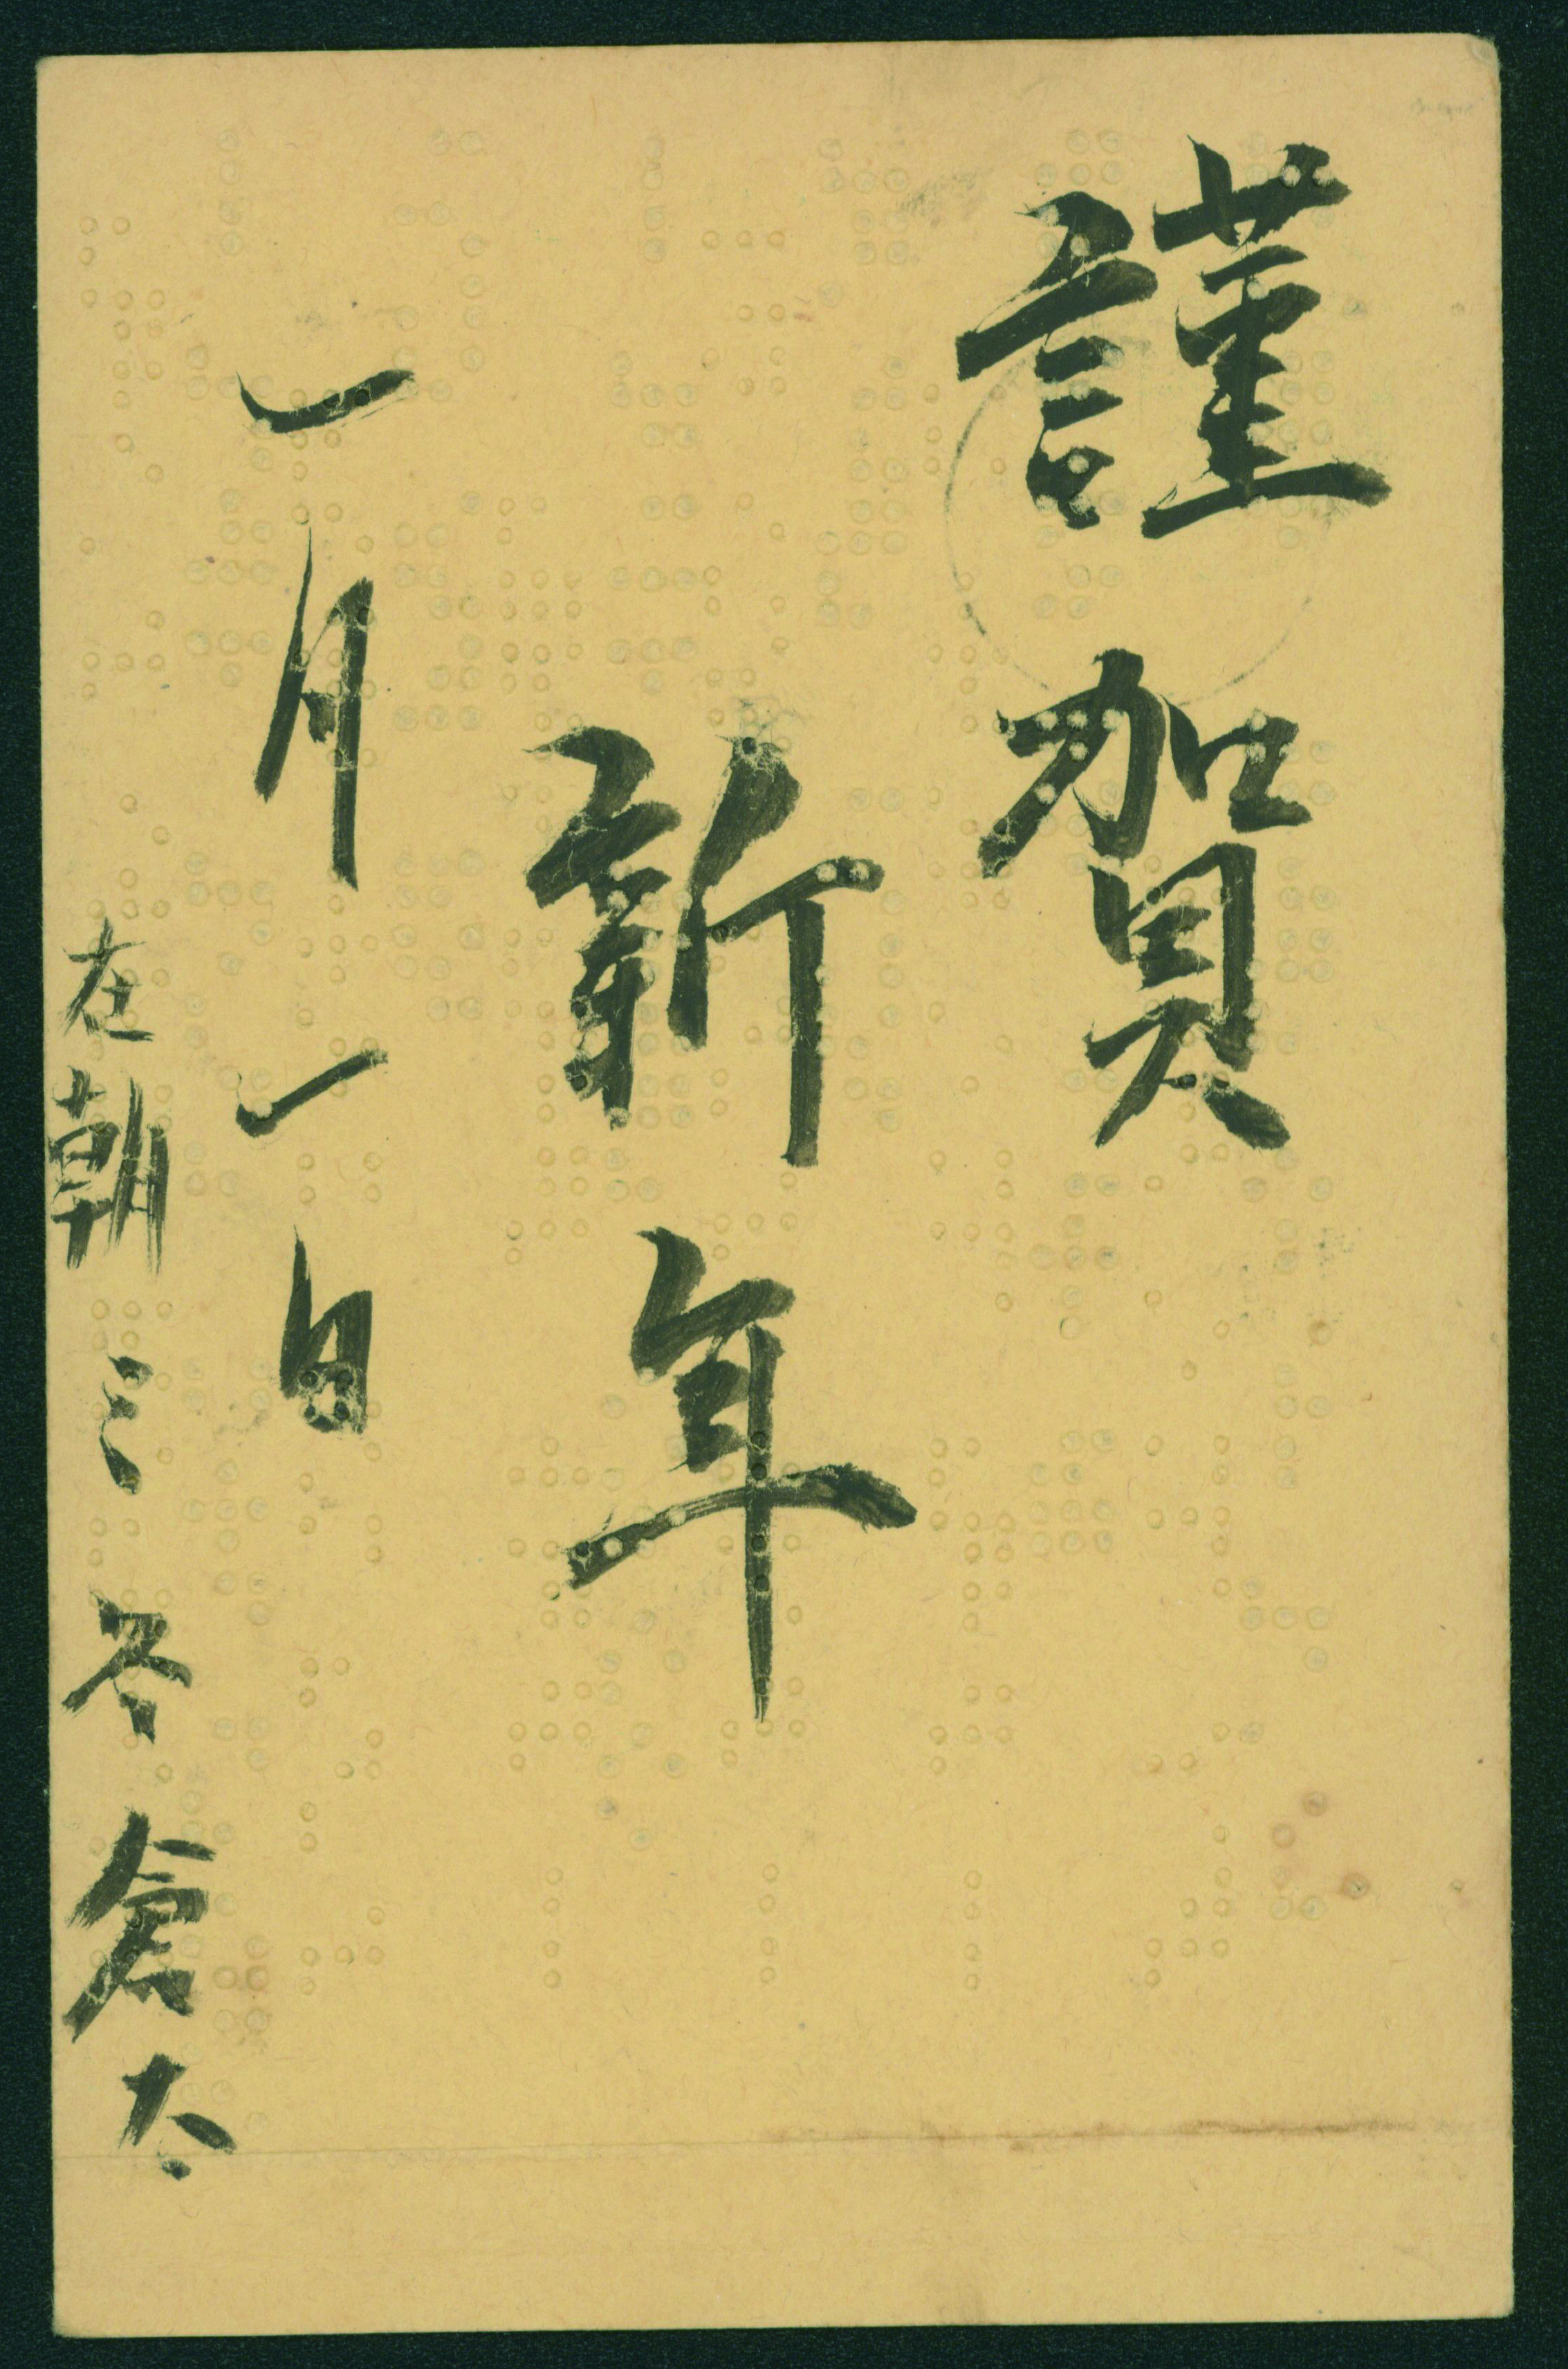 謹賀
新年
一月一日
在朝 三谷倉太